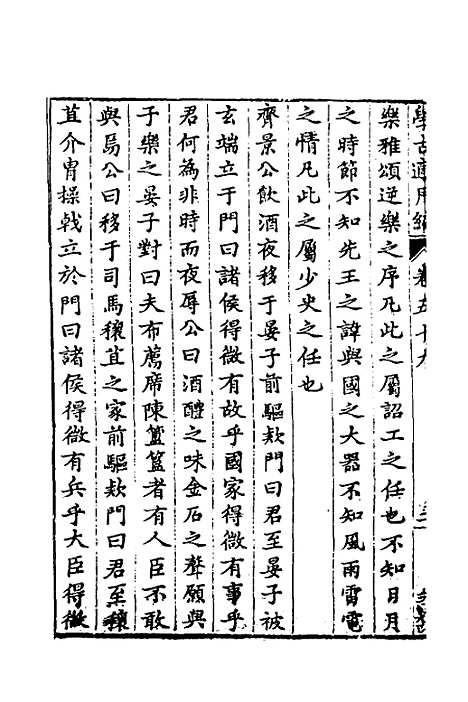 學古適用編 卷五十九
樂雅頌逆樂之序凡此之屬詔工之任也不知日月
之時節不知先王之諱與國之大器不知風雨雷電
之情凡此之屬少史之任也
齊景公飲酒夜移于晏子前驅款門曰君至晏子被
玄端立于門曰諸侯得微有故乎國家得微有事乎
君何為非時而夜辱公曰酒醴之味金石之聲願與
子樂之晏子對曰夫布薦席陳簠簋者有人臣不敢
與焉公曰移于司馬穰苴之家前驅款門曰君至穰
苴介冑操戟立於門曰諸侯得微有兵乎大臣得微